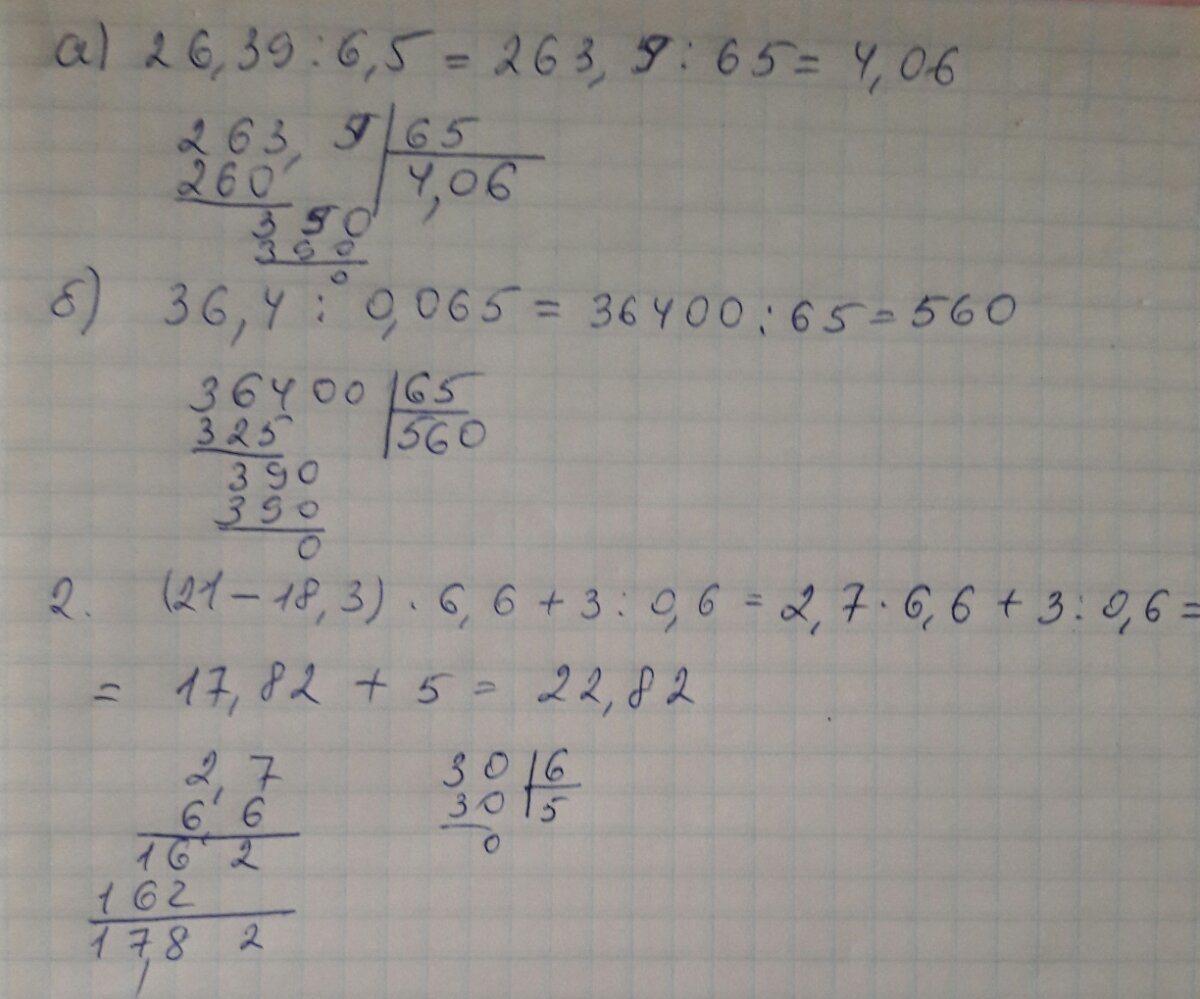 а) 26,39 : 6,5 = 263,9 : 65 = 4,06
263,9 | 65
260 | 4,06
390
390
0
б) 36,4 : 0,065 = 36400 : 65 = 560
36400 | 65
325 | 560
390
390
0
2. (21 - 18,3) · 6,6 + 3 : 0,6 = 2,7 · 6,6 + 3 : 0,6 =
= 17,82 + 5 = 22,82
2,7 30 | 6
6,6 30 | 5
16 2 0
162
17,8 2